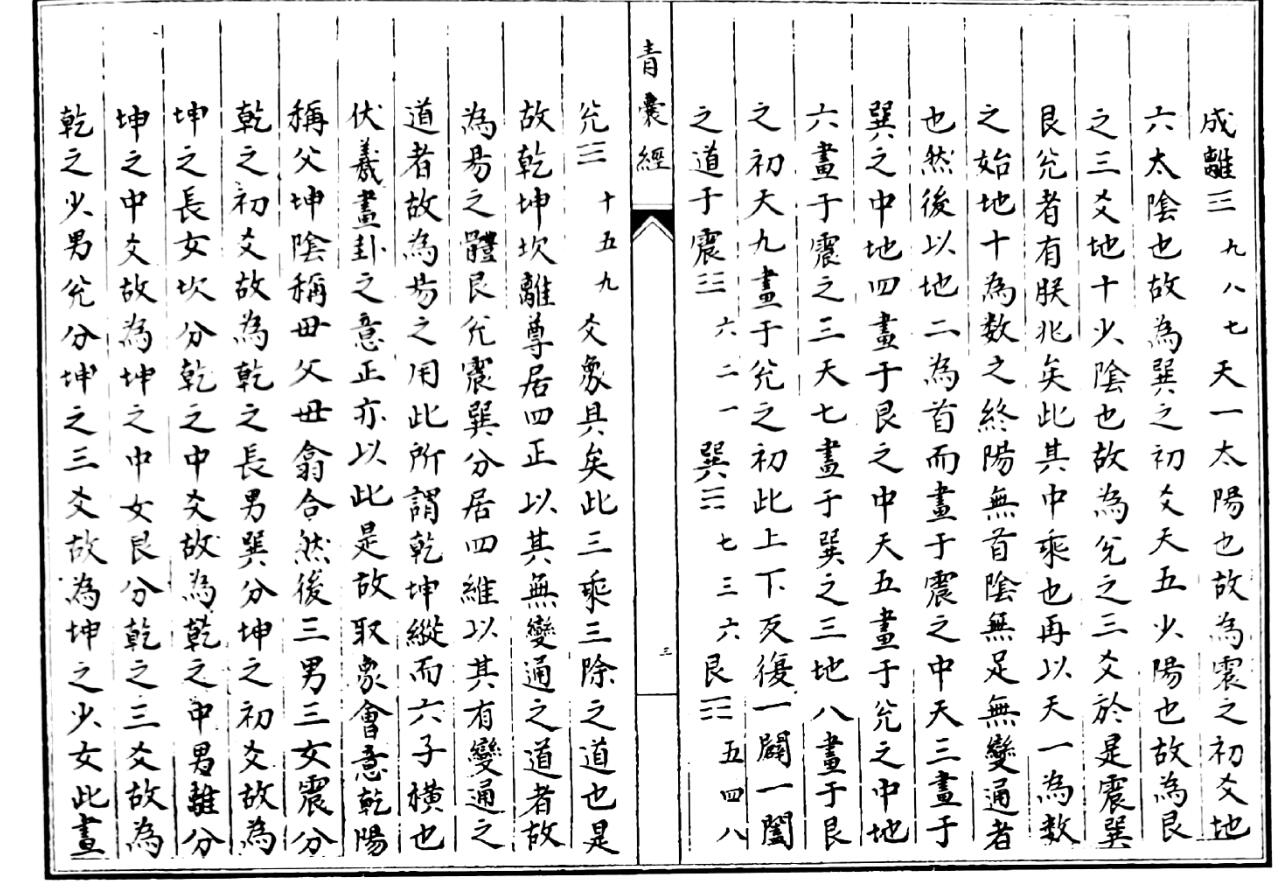 成離☲九八七天一太陽也故為震之初爻地
六太陰也故為巽之初爻天五少陽也故為艮
之三爻地十少陰也故為兌之三爻於是震巽
艮兌者有朕兆矣此其中乘也再以天一為数
之始地十為数之終陽無首陰無足無變通者
也然後以地二為首而畫于震之中天三畫于
巽之中地四畫于艮之中天五畫于兌之中地
六畫于震之三天七畫于巽之三地八畫于艮
之初天九畫于兌之初此上下反復一闢一闔
之道于震☳六二一巽☴七三六艮☶五四八
青囊經
三
兌☱十五九爻象具矣此三乘三除之道也是
故乾坤坎離尊居四正以其無變通之道者故
為易之體艮兌震巽分居四維以其有變通之
道者故為易之用此所謂乾坤縱而六子橫也
伏羲畫卦之意正亦以此是故取象會意乾陽
稱父坤陰稱毋父毋翕合然後三男三女震分
乾之初爻故為乾之長男巽分坤之初爻故為
坤之長女坎分乾之中爻故為乾之中男離分
坤之中爻故為坤之中女艮分乾之三爻故為
乾之少男兌分坤之三爻故為坤之少女此畫